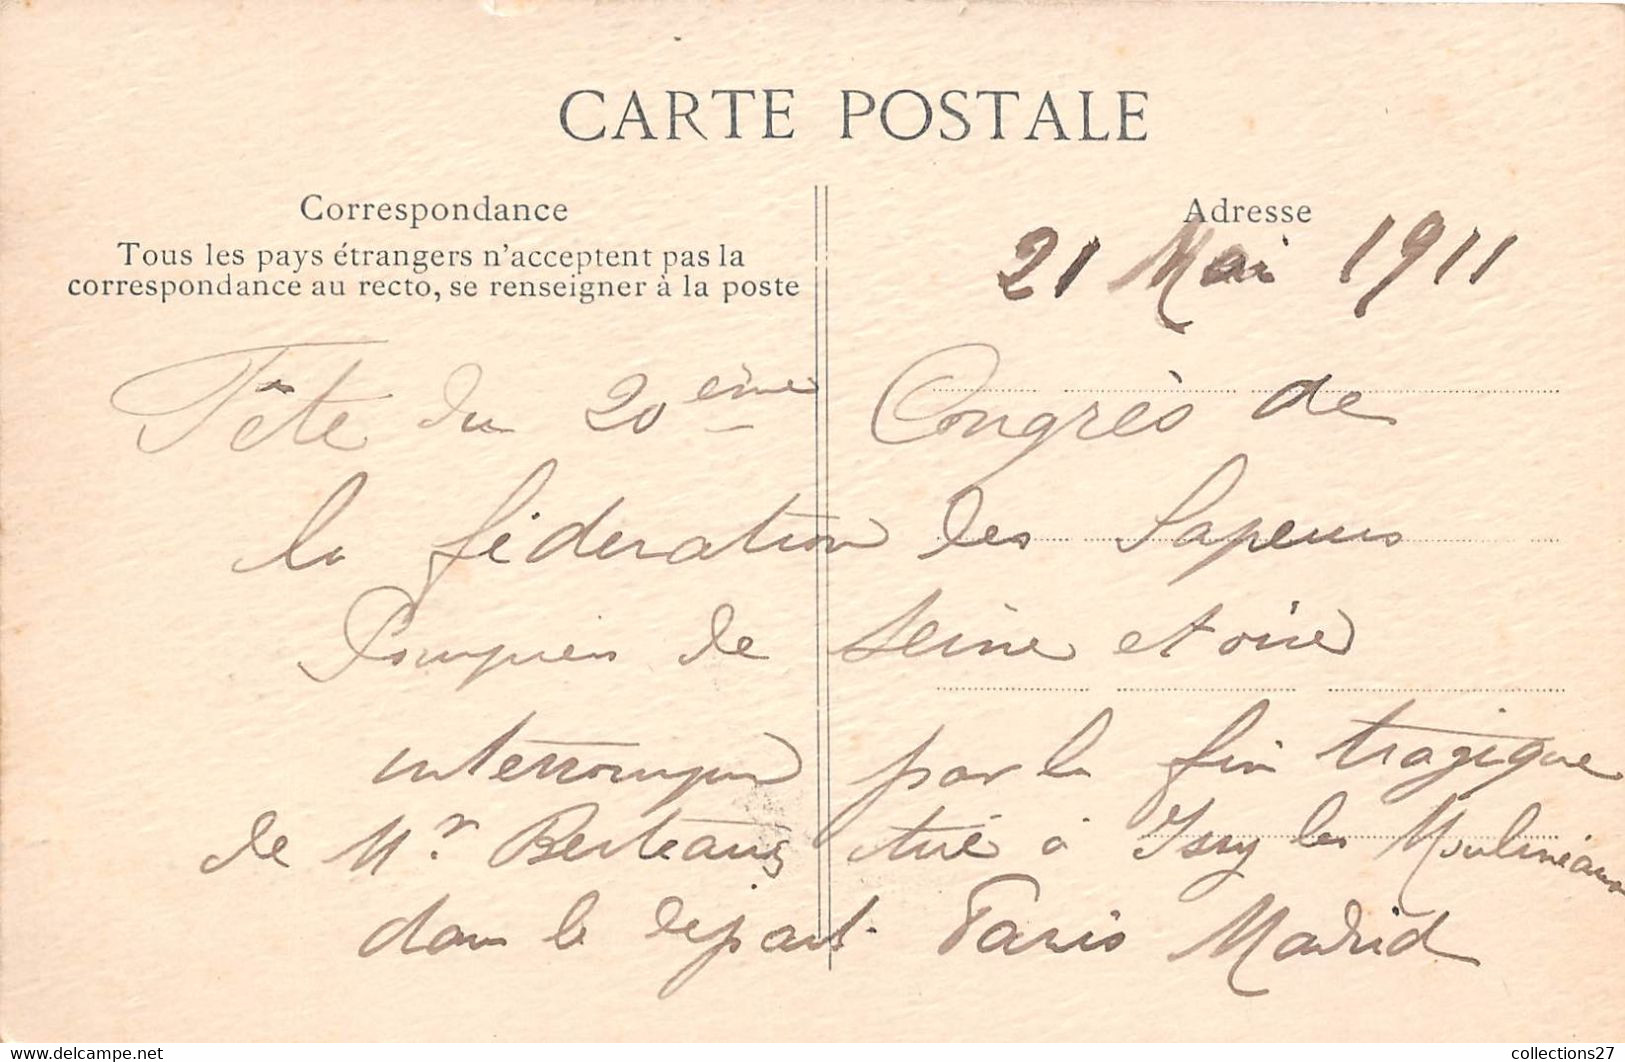 CARTE POSTALE
Correspondance
Tous les pays étrangers n'acceptent pas la
correspondance au recto, se renseigner à la poste
Adresse
21 Mai 1911
Fête du 20ème Congrès de
la féderation des Sapeurs
Pompiers de Seine et oise
interrompue par la fin tragique
de Mr. Berteaux tué à Issy les Moulineaux
dans le départ Paris Madrid
www.delcampe.net
collections27